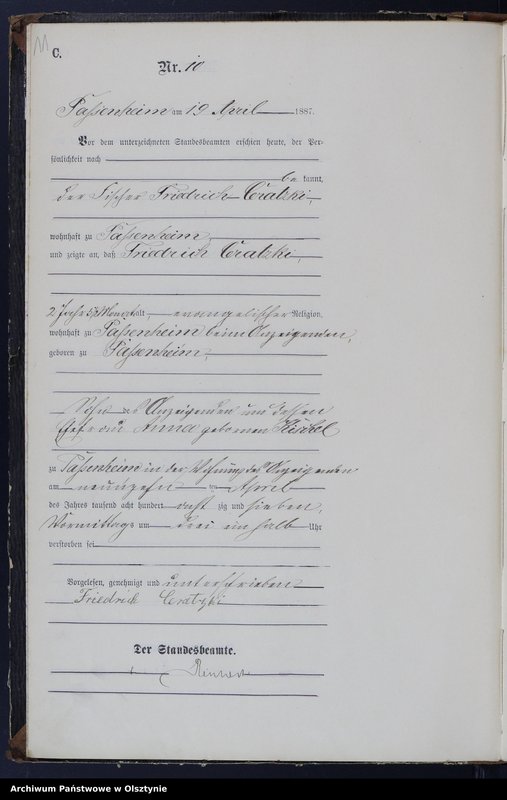 C.
Nr. 10
Passenheim am 19 April 1887.
Vor dem unterzeichneten Standesbeamten erschien heute, der Per-
sönlichkeit nach
be kannt,
der Fischer Friedrich Czatzki,
wohnhaft zu Passenheim,
und zeigte an, daß Friedrich Czatzki,
2 Jahr alt, evangelischer Religion,
wohnhaft zu Passenheim beim Anzeigenden,
geboren zu Passenheim,
Sohn des Anzeigenden und dessen
Ehefrau Anna gebornen
zu Passenheim in der Wohnung des Anzeigenden
am neunzehn ten April
des Jahres tausend acht hundert acht zig und sieben,
Vormittags um drei ein halb Uhr
verstorben sei
Vorgelesen, genehmigt und unterschrieben
Friedrich
Der Standesbeamte.
Archiwum Państwowe w Olsztynie